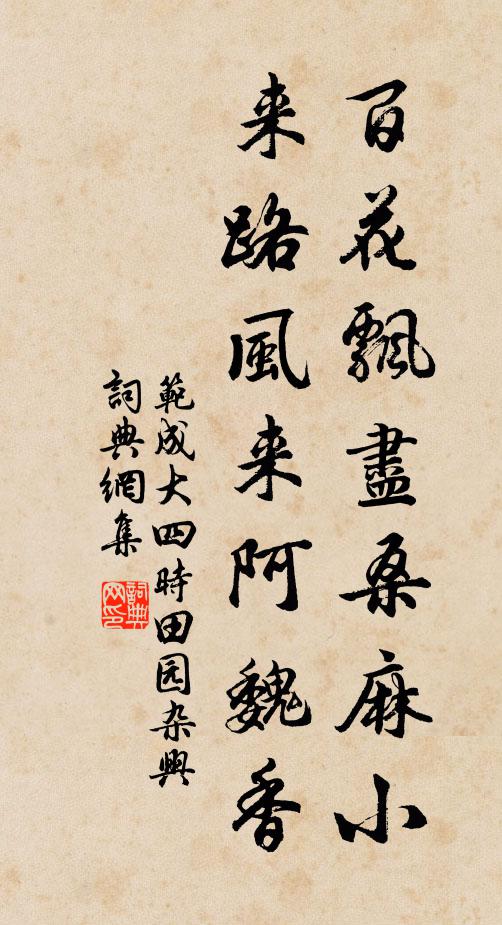 百花飄盡桑麻小
来路風来阿魏香
範成大四時田园杂興
詞典網集
詞典网印